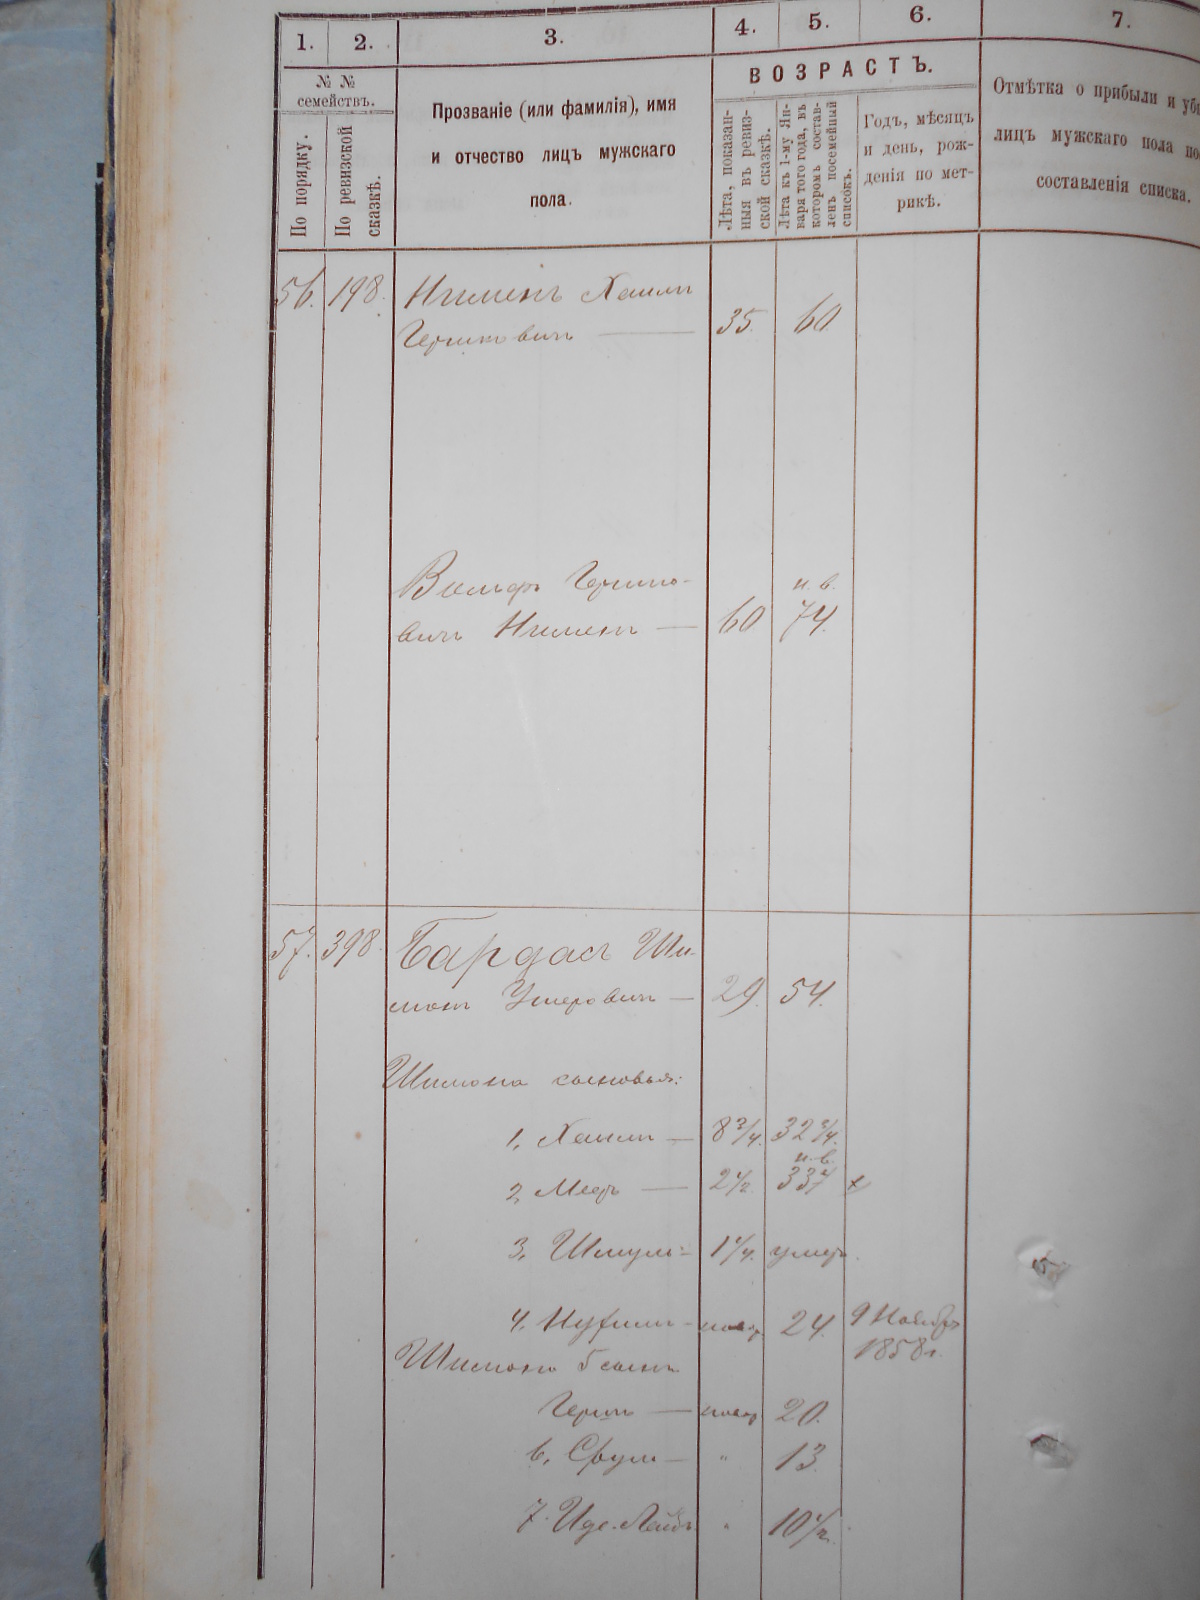 1. 2. 3. 4. 5. 6. 7.
№ №
семействъ.
По порядку.
По ревизской
сказкѣ.
Прозваніе (или фамилія), имя
и отчество лицъ мужскаго
пола.
ВОЗРАСТЪ.
Лѣта, показан-
ныя въ ревиз-
ской сказкѣ.
Лѣта къ 1-му Ян-
варя того года, въ
которомъ состав-
ленъ посемейный
списокъ.
Годъ, мѣсяцъ
и день, рож-
денія по мет-
рикѣ.
Отмѣтка о прибыли и
лицъ мужскаго пола
составленія списка.
56. 198. Хаимъ
Гершковичъ — 35. 60
Вольфъ Гершко- н. в.
вичъ — 60 74.
57. 398. Бардасъ Ши-
монъ Ушеровичъ — 29. 54.
Шимона сыновья:
1, Хаимъ — 8¾. 32¾.
н. в.
2, — 2½
3, Шмуль — 1¼. умеръ.
4, Нухимъ — новор. 24. 9 Ноября
1858 г.
Шимона 5 сынъ
Гершъ — новор 20.
6, Сруль — " 13.
7. Иде-Лейбъ " 10½